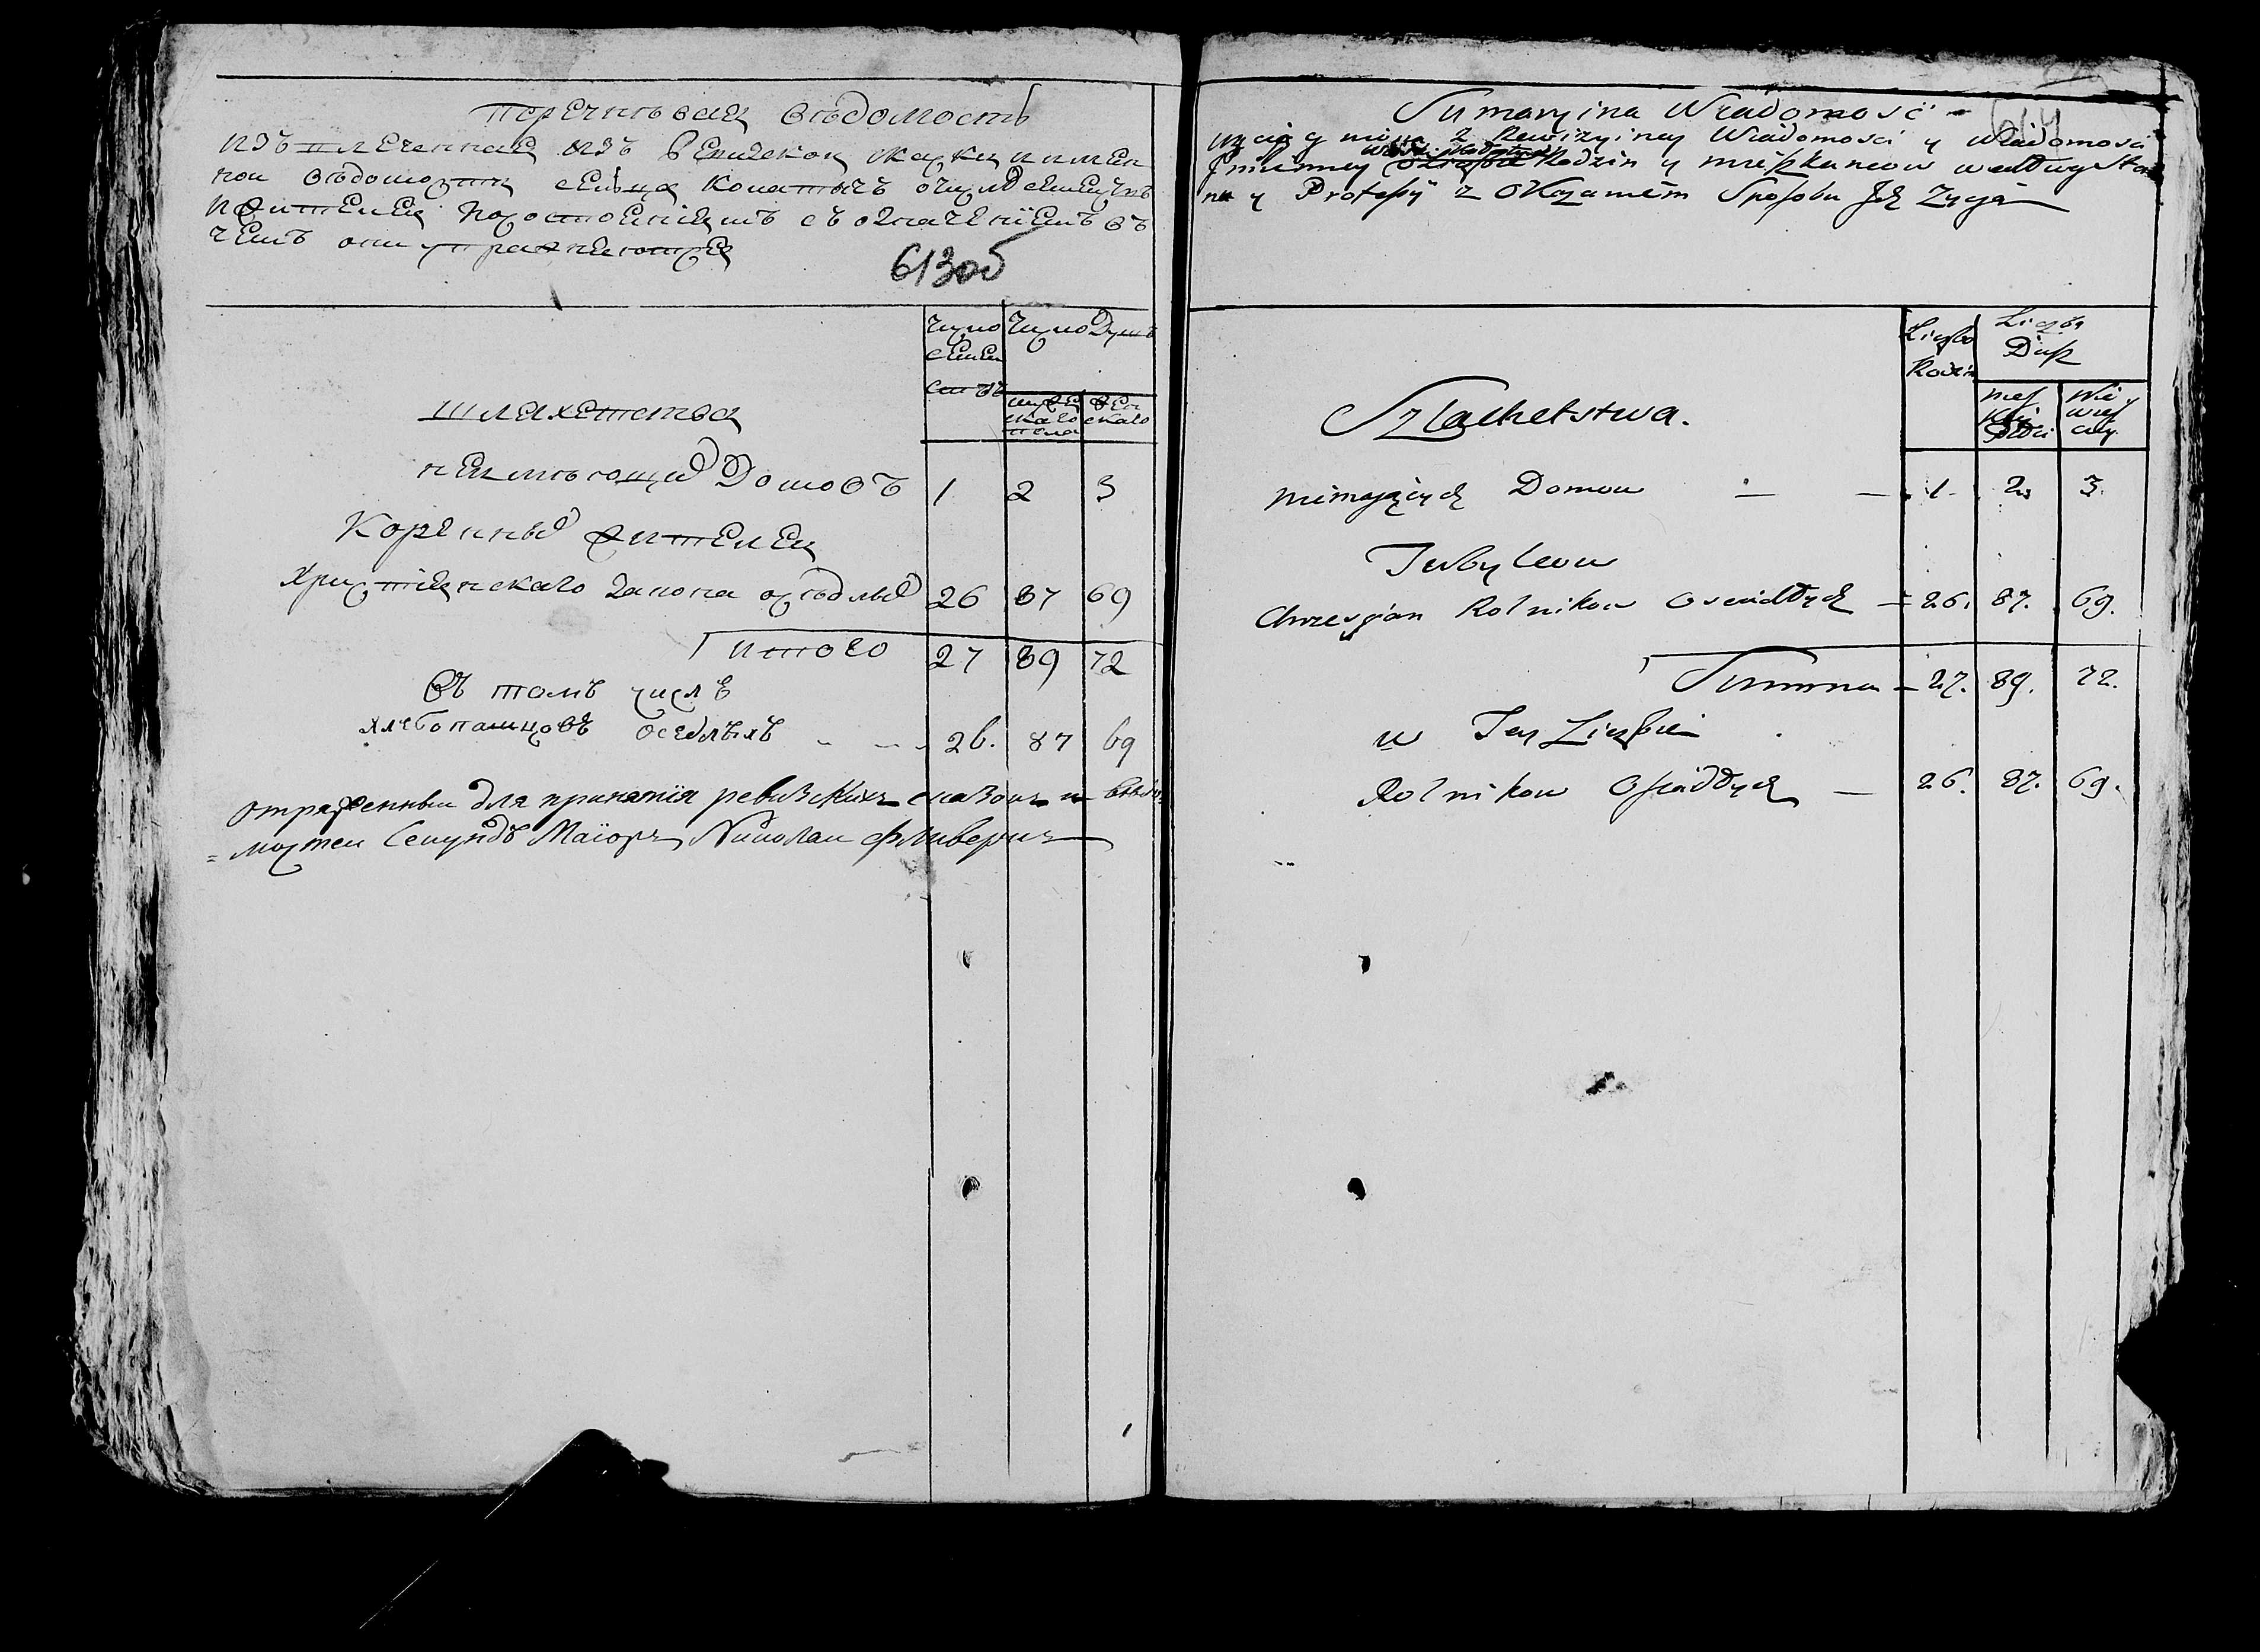 Перечневая ведомость
изъвлеченная изъ ревизской скаски и имен
ной ведомости сельца Копатычъ о числе семей
и жителей по состояниямъ съ означениемъ въ
чемъ они упражняются
613об
число семей ствъ
число душъ
мужеска го пола
жен скаго
шляхетства
неимеющие домовъ 1 2 3
Коренные жители
христианскаго закона оседлые 26 87 69
итого 27 89 72
Въ томъ числѣ
хлебопашцовъ оседлыхъ 26. 87 69
отряженный для принятия ревизскихъ сказокъ и ведо
=мостей Секундъ Маiоръ Николай
Sumaryina Wiadomość
z Rewizyiney Wiadomosci y Wiadomosci
Jmienney Rodzin y mieszkancow według Sta
nu y Profesyi z Okazaniem Sposobu Jch Zycia
614
Liczba Rodzin
Liczba Dusz
Męs kiey Płci
Nie wies ciey
Szlachetstwa.
Nimaiących Domow — — 1. 2. 3.
Tubylcow
Chrescijan Rolnikow Osiadłych — 26. 87. 69.
Summa — 27. 89. 72.
w Tey Liczbie
Rolnikow Osiadłych — 26. 87. 69.